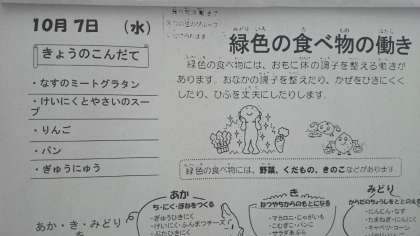 10月7日 （水）
きょうのこんだて
・なすのミートグラタン
・けいにくとやさいのスー
プ
・りんご
・パン
・ぎゅうにゅう
あか・き・みどり
緑色の食べ物の働き
緑色の食べ物には、おもに体の調子を整える働きが
あります。おなかの調子を整えたり、かぜをひきにくく
したり、ひふを丈夫にしたりします。
緑色の食べ物には、野菜、くだもの、きのこなどがあります。
あか
ち・にく・ほねをつくる
・ぎゅうひきにく
き
ねつやちからのもとになる
・マカロニ・じゃがいも
・こむぎこ・パンこ
みどり
からだのちょうしをととのえる
・にんじん・なす
・たまねぎ・トマト
・キャベツ・コーン